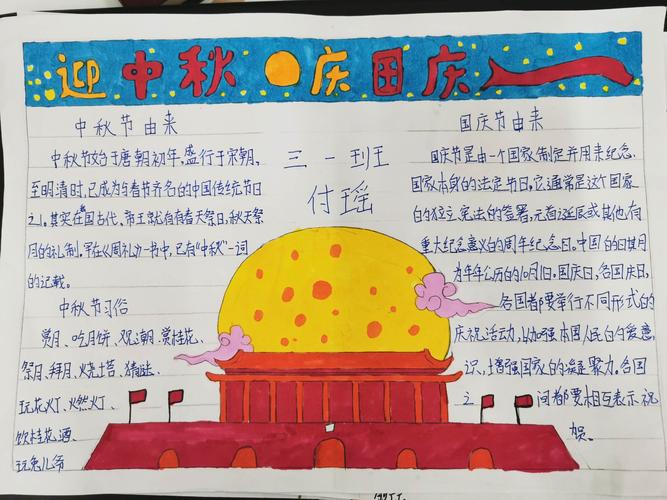 迎中秋 庆国庆
中秋节由来
中秋节始于唐朝初年,盛行于宋朝,
至明清时,已成为与春节齐名的中国传统节日
之一,其实在国古代、帝王就有春天祭日,秋天祭
月的礼制,早在《周礼》一书中,已有“中秋”一词
的记载。
中秋节习俗
赏月、吃月饼、观潮、赏桂花、
祭月、拜月、烧塔、猜谜、
玩花灯、燃灯、
饮桂花酒、
玩兔儿爷
三一班
付瑶
国庆节由来
国庆节是由一个国家制定并用来纪念
国家本身的法定节日,它通常是这个国家
的独立、宪法的签署,元首诞辰或其他有
重大纪念意义的周年纪念日。中国的日其月
为年年公历的10月1日,国庆日,各国庆日,
各国都要举行不同形式的
庆祝活动,以加强本国人民的爱意
识,增强国家的凝聚力,各国
之间都要相互表示祝
贺。